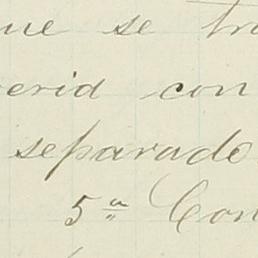 ue se tra
erid con
separado
5ª Con